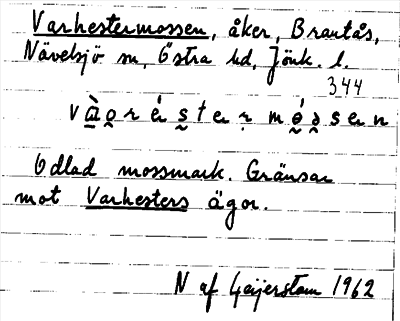 Varhestermossen, åker, Brantås,
Nävelsjö sn, Östra hd, Jönk. l.
344
Odlad mossmark. Gränsar
mot Varhesters ägor.
N af Geijerstam 1962